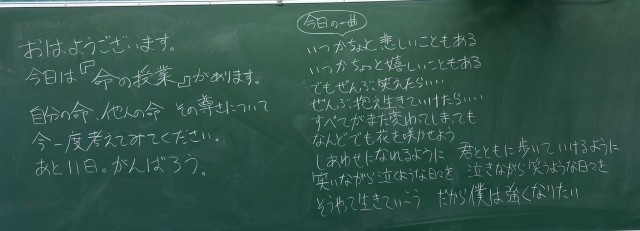 おはようございます。
今日は『命の授業』があります。
自分の命、他人の命 その尊さについて
今一度考えてみてください。
あと11日。がんばろう。
今日の一曲
いつかちょと悲しいこともある
いつかちょっと嬉しいこともある
でもぜんぶ笑えたらいい…
ぜんぶ抱え生きていけたらいい…
すべてがまだ変わてしまても
なんどでも花を咲かせよう
しあわせになれるように 君とともに歩いていけるように
笑いながら泣くような日々を 泣きながら笑うような日々を
そうやって生きていこう だから僕は強くなりたい